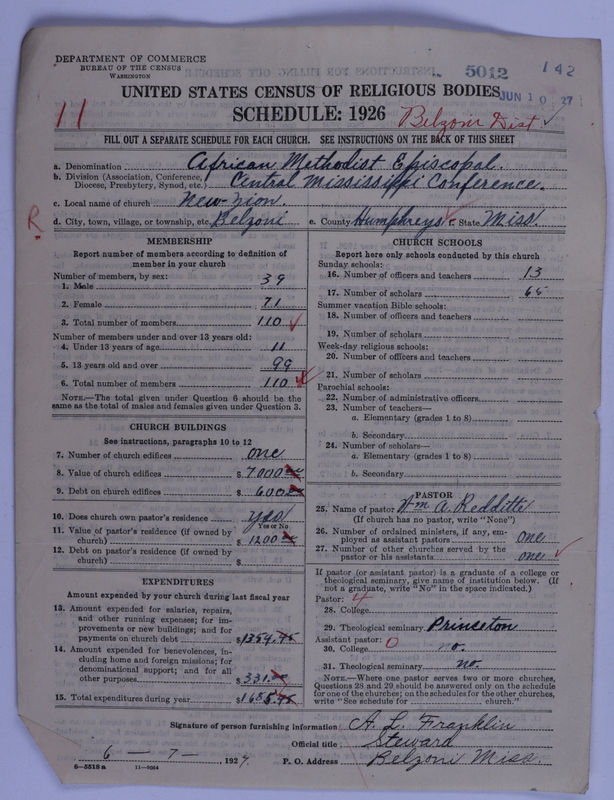 DEPARTMENT OF COMMERCE
BUREAU OF THE CENSUS
WASHINGTON
5012
142
UNITED STATES CENSUS OF RELIGIOUS BODIES
JUN 10 27
SCHEDULE: 1926
11
Belzoni Dist
FILL OUT A SEPARATE SCHEDULE FOR EACH CHURCH. SEE INSTRUCTIONS ON THE BACK OF THIS SHEET
a. Denomination African Methodist Episcopal.
b. Division (Association, Conference, Diocese, Presbytery, Synod, etc.) Central Mississippi Conference.
c. Local name of church New-Zion.
R
d. City, town, village, or township, etc. Belzoni e. County Humphreys f. State Miss.
MEMBERSHIP
Report number of members according to definition of
member in your church
Number of members, by sex:
1. Male 39
2. Female 71
3. Total number of members 110
Number of members under and over 13 years old:
4. Under 13 years of age 11
5. 13 years old and over 99
6. Total number of members 110
NOTE.—The total given under Question 6 should be
same as the total of males and females given under Question 3.
CHURCH BUILDINGS
See instructions, paragraphs 10 to 12
7. Number of church edifices one
8. Value of church edifices $ 7000
9. Debt on church edifices $ 600
10. Does church own pastor's residence yes
Yes or No
11. Value of pastor's residence (if owned by
church) $ 1200
12. Debt on pastor's residence (if owned by
church) $
EXPENDITURES
Amount expended by your church during last fiscal year
13. Amount expended for salaries, repairs,
and other running expenses; for im-
provements or new buildings; and for
payments on church debt $1354.45
14. Amount expended for benevolences, in-
cluding home and foreign missions; for
denominational support; and for all
other purposes $ 331.
15. Total expenditures during year $1685.45
CHURCH SCHOOLS
Report here only schools conducted by this church
Sunday schools:
16. Number of officers and teachers 13
17. Number of scholars 65
Summer vacation Bible-schools:
18. Number of officers and teachers
19. Number of scholars
Week-day religious schools:
20. Number of officers and teachers
21. Number of scholars
Parochial schools:
22. Number of administrative officers
23. Number of teachers—
a. Elementary (grades 1 to 8)
b. Secondary
24. Number of scholars—
a. Elementary (grades 1 to 8)
b. Secondary
PASTOR
25. Name of pastor Wm A. Redditte
(If church has no pastor, write "None")
26. Number of ordained ministers, if any, em-
ployed as assistant pastors one
27. Number of other churches served by the
pastor or his assistants one
If pastor (or assistant pastor) is a graduate of a college or
theological seminary, give name of institution below. (If
not a graduate, write "No" in the space indicated.)
Pastor: 4
28. College
29. Theological seminary Princeton
Assistant pastor: 0
30. College no.
31. Theological seminary no.
NOTE.—Where one pastor serves two or more churches,
Questions 28 and 29 should be answered only on the schedule
for one of the churches; on the schedules for the other churches,
write "See schedule for church."
Signature of person furnishing information A. L. Franklin
Official title Steward
6 - 7 - 1927 P. O. Address Belzoni Miss.
6-5518a 11-9064